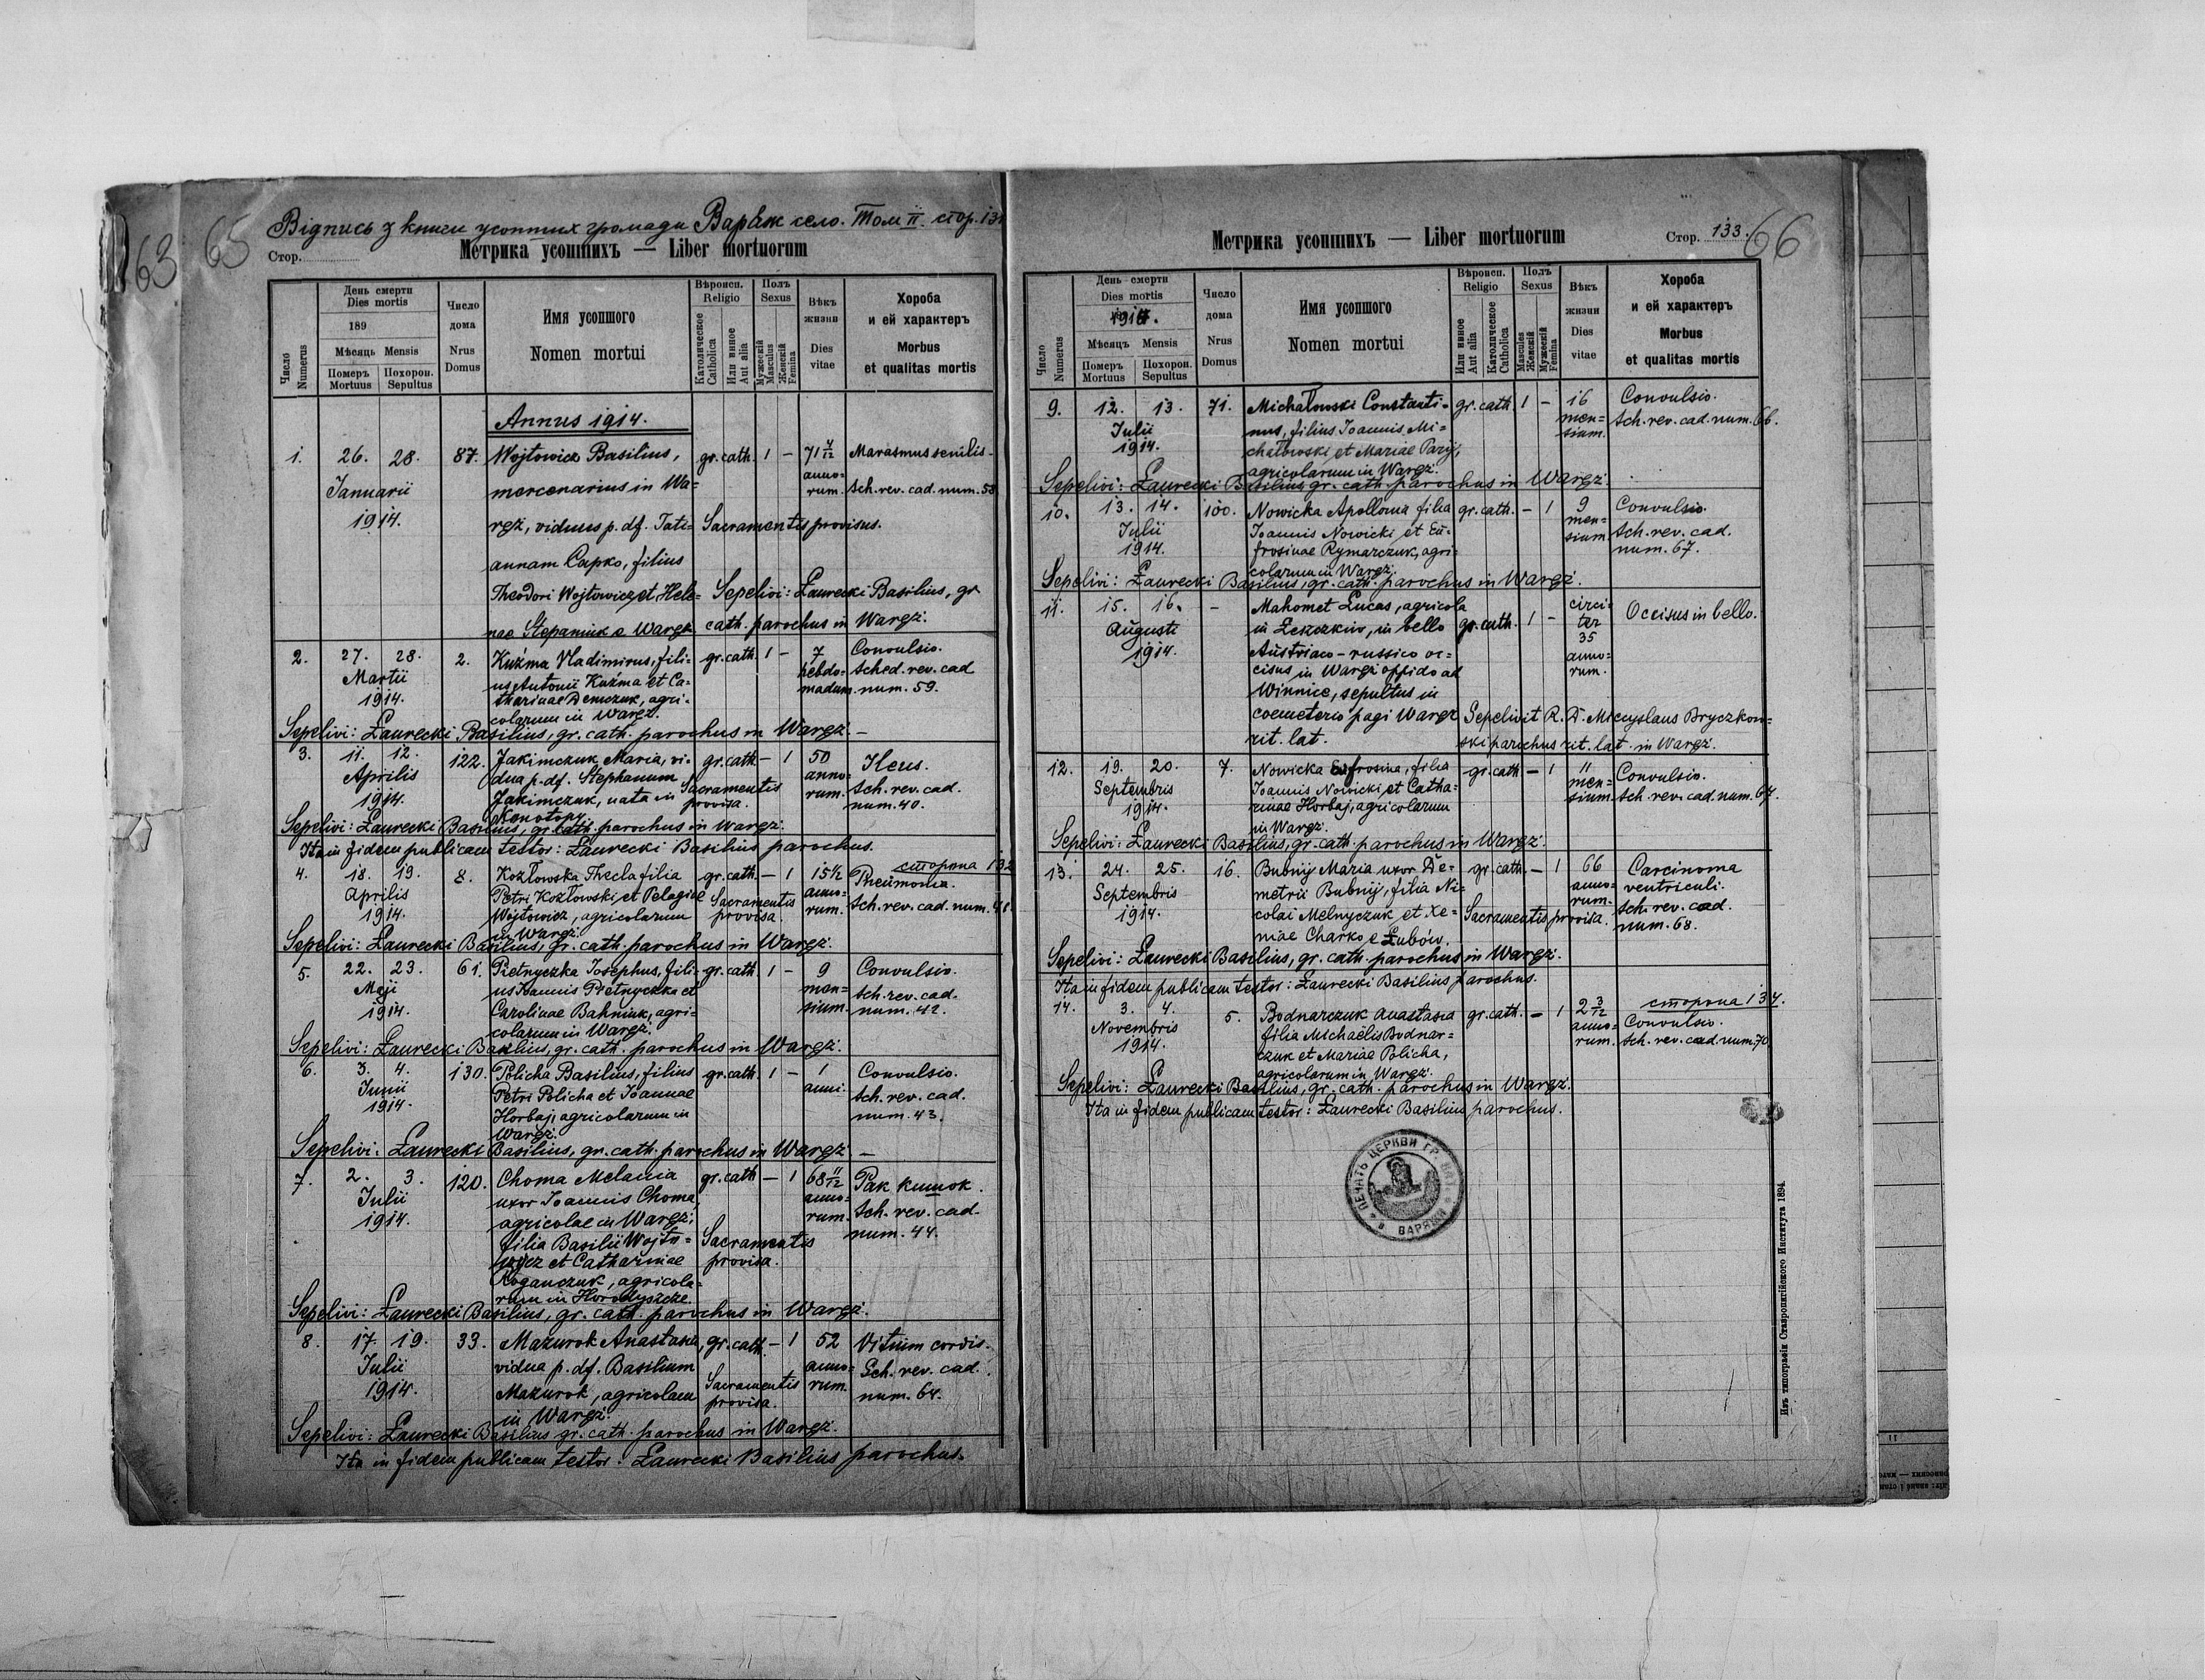 63
65
Відпись з книги усопших громади Варяж село. Том II. стор. 13
Метрика усопшихъ — Liber mortuorum
Стор.
Число
Numerus
День смерти
Dies mortis
189
Мѣсяць Mensis
Померъ
Mortuus
Похорон.
Sepultus
Число
дома
Nrus
Domus
Имя усопшого
Nomen mortui
Вѣроисп.
Religio
Католическое
Catholica
Или инное
Aut alia
Полъ
Sexus
Мужескій
Masculus
Женскій
Femina
Вѣкъ
жизни
Dies
vitae
Хороба
и ей характеръ
Morbus
et qualitas mortis
Annus 1914.
1. 26. 28. 87. Wojtowicz Basilius, gr. cath. 1 – 71 4/12 Marasmus senilis.
Januarii mercenarius in Wa= anno= rum. Sch. rev. cad. num. 58
1914. rgż, viduus p. df. Tati= Sacramentis provisus.
annam Capko, filius
Theodori Wojtowicz et Hele= Sepelivi: Ławrecki Basilius, gr
nae Stepaniuk e Wargż cath. parochus in Wargż.
2. 27. 28. 2. Kuźma Vladimirus, fili= gr. cath. 1 – 7 Convulsio.
Martii us Antonii Kuźma et Ca= hebdo= Sched. rev. cad
1914. tharinae Demczuk, agri= madum. num. 59.
colarum in Wargż.
Sepelivi: Ławrecki Basilius, gr. cath. parochus in Wargż. –
3. 11. 12. 122. Jakimczuk Maria, vi= gr. cath – 1 50 Ileus.
Aprilis dua p. df. Stephanum anno= Sch. rev. cad.
1914. Jakimczuk, nata in Sacramentis provisa. rum. num. 40.
Konotopy.
Sepelivi: Ławrecki Basilius, gr. cath. parochus in Wargż.
Ita in fidem publicam testor: Ławrecki Basilius parochus.
сторона 132
4. 18. 19. 8. Kozłowska Thecla filia gr. cath. – 1 15 1/2 Pneumonia.
Aprilis Petri Kozłowski et Pelagiae Sacramentis anno= Sch. rev. cad. num. 41.
1914. Wojtowicz, agricolarum provisa. rum.
in Wargż.
Sepelivi: Ławrecki Basilius, gr. cath. parochus in Wargż.
5. 22. 23. 61. Pietnyczka Josephus, fili= gr. cath. 1 – 9 Convulsio.
Maji us Joannis Pietnyczka et men= Sch. rev. cad.
1914. Carolinae Bahniuk, agri= sium. num. 42.
colarum in Wargż.
Sepelivi: Ławrecki Basilius, gr. cath. parochus in Wargż.
6. 3. 4. 130. Policha Basilius, filius gr. cath. 1 – 1 Convulsio.
Junii Petri Policha et Joannae anni. Sch. rev. cad.
1914. Horbaj, agricolarum in num. 43.
Wargż.
Sepelivi: Ławrecki Basilius, gr. cath. parochus in Wargż –
7. 2. 3. 120. Choma Melania gr. cath – 1 68 11/12 Рак кишок.
Julii uxor Joannis Choma, anno= Sch. rev. cad.
1914. agricolae in Wargż, rum. num. 44.
filia Basilii Wojto= Sacramentis
wycz et Catharinae provisa.
Roganczuk, agricola=
rum in Horodyszcze
Sepelivi: Ławrecki Basilius, gr. cath. parochus in Wargż.
8. 17. 19. 33. Mazurok Anastasia, gr. cath. – 1 52 Vitium cordis.
Julii vidua p. df. Basilium Sacramentis anno= Sch. rev. cad.
1914. Mazurok, agricolam provisa. rum. num. 64.
in Wargż.
Sepelivi: Ławrecki Basilius gr. cath. parochus in Wargż.
Ita in fidem publicam testor: Ławrecki Basilius parochus.
Метрика усопшихъ — Liber mortuorum
Стор. 133.
66
Число
Numerus
День смерти
Dies mortis
1914.
Мѣсяцъ Mensis
Померъ
Mortuus
Похорон.
Sepultus
Число
дома
Nrus
Domus
Имя усопшого
Nomen mortui
Вѣроисп.
Religio
Или инное
Aut alia
Католическое
Catholica
Полъ
Sexus
Mascules
Женскій
Мужескій
Femina
Вѣкъ
жизни
Dies
vitae
Хороба
и ей характеръ
Morbus
et qualitas mortis
9. 12. 13. 71. Michałowski Constanti= gr. cath. 1 – 16 Convulsio.
Julii nus, filius Joannis Mi= men= Sch. rev. cad. num. 66.
1914. chałowski et Mariae Paryj, sium.
agricolarum in Wargż.
Sepelivi: Ławrecki Basilius gr. cath. parochus in Wargż.
10. 13. 14. 100. Nowicka Apollonia filia gr. cath. – 1 9 Convulsio.
Julii Joannis Nowicki et Eu= men= Sch. rev. cad.
1914. frosinae Rymarczuk, agri= sium. num. 67.
colarum in Wargż.
Sepelivi: Ławrecki Basilius, gr. cath. parochus in Wargż.
11. 15. 16. – Mahomet Lucas, agricola gr. cath. 1 – circi= Occisus in bello.
Augusti in Leszczkiw, in bello ter
1914. Austriaco-russico oc= 35
cisus in Wargż oppido ad anno=
Winnice, sepultus in rum.
coemeterio pagi Wargż Sepelivit R. D. Mieczyslaus Bryczkow=
rit. lat. ski parochus rit. lat. in Wargż.
12. 19. 20. 7. Nowicka Eufrosina, filia gr. cath – 1 11 Convulsio.
Septembris Joannis Nowicki et Catha= men= Sch. rev. cad. num. 67.
1914. rinae Horbaj, agricolarum sium.
in Wargż.
Sepelivi: Ławrecki Basilius, gr. cath. parochus in Wargż.
13. 24. 25. 16. Bubnij Maria uxor De= gr. cath. – 1 66 Carcinoma
Septembris metrii Bubnij, filia Ni= anno= ventriculi.
1914. colai Melnyczuk et Xe= Sacramentis provisa. rum. Sch. rev. cad.
niae Charko e Łubów. num. 68.
Sepelivi: Ławrecki Basilius, gr. cath. parochus in Wargż.
Ita in fidem publicam testor: Ławrecki Basilius parochus.
сторона 134.
14. 3. 4. 5. Bodnarczuk Anastasia gr. cath. – 1 2 3/12 Convulsio.
Novembris filia Michaëlis Bodnar= anno= Sch. rev. cad. num. 70
1914. czuk et Mariae Policha, rum.
agricolarum in Wargż.
Sepelivi: Ławrecki Basilius, gr. cath. parochus in Wargż.
Ita in fidem publicam testor: Ławrecki Basilius parochus.
ПЕЧАТЬ ЦЕРКВИ ГР. КАТ. В ВАРЯЖИ
Изъ типографіи Ставропигійского Института 1894.